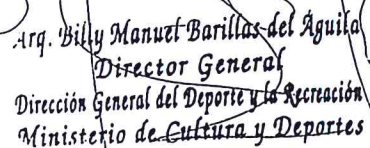 Arq. Billy Manuel Barillas del Águila
Director General
Dirección General del Deporte y la Recreación
Ministerio de Cultura y Deportes